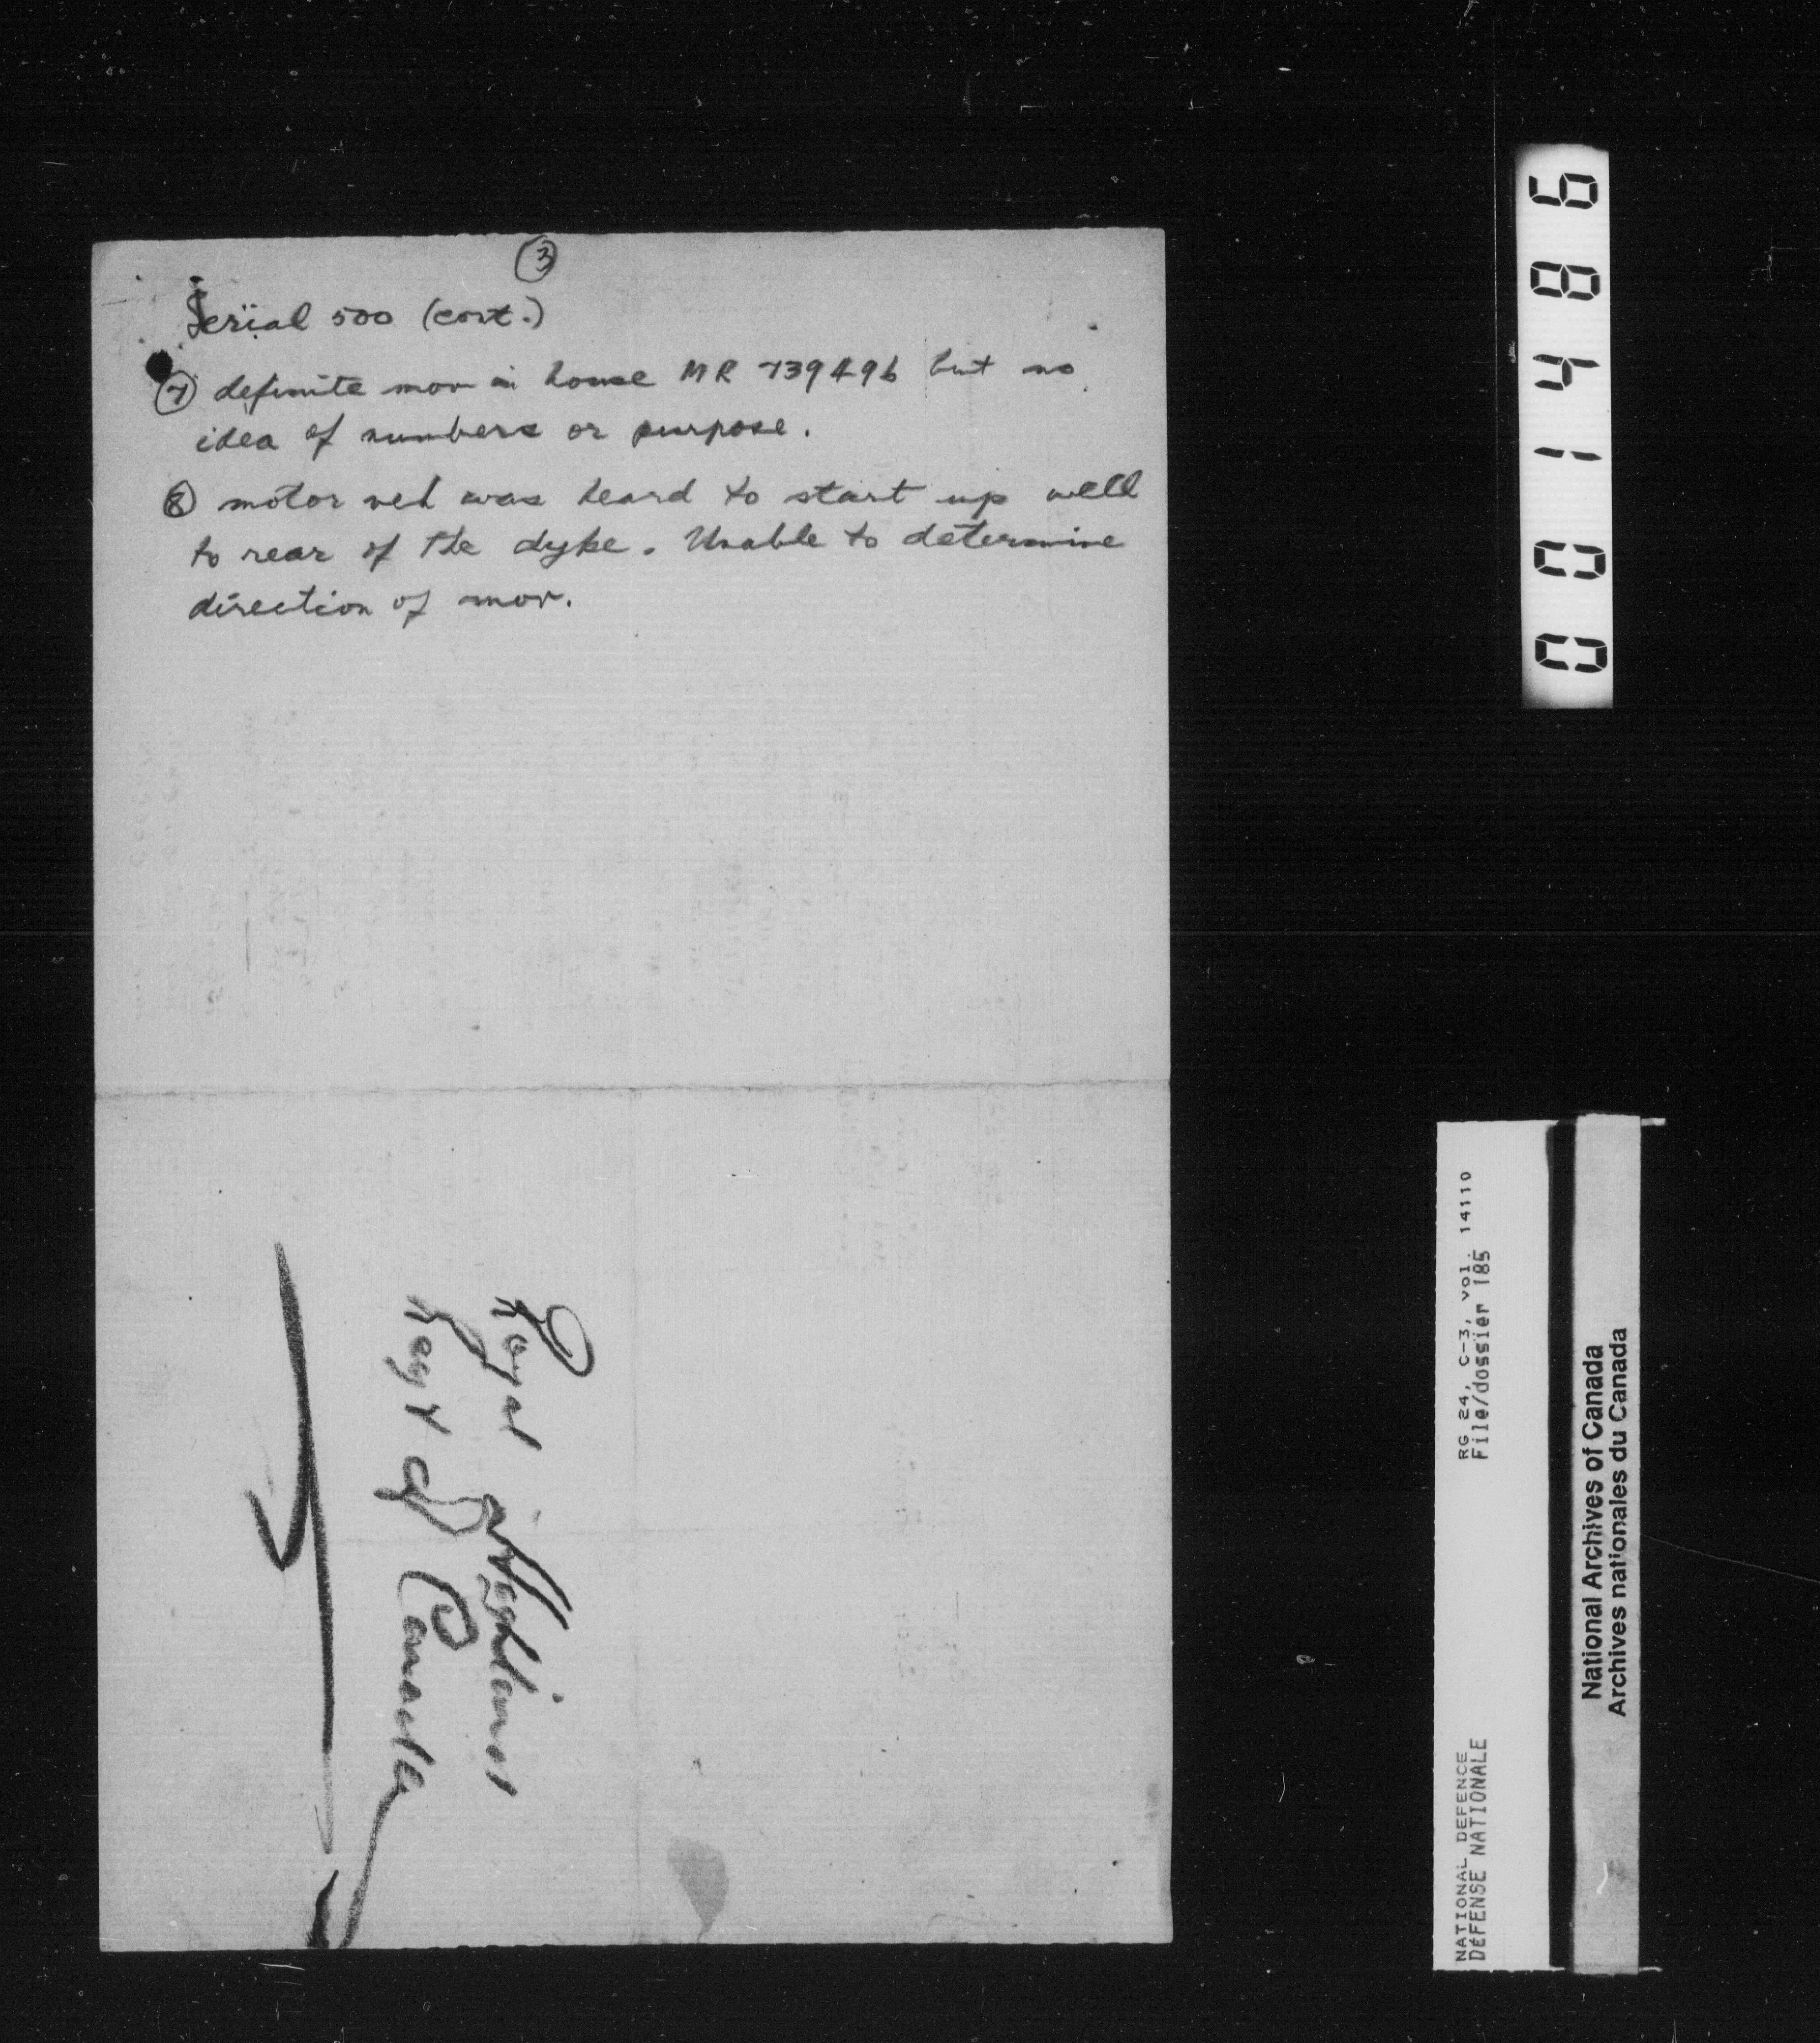 ③
Serial 500 (cont.)
⑦ definite mov in house MR 739496 but no
idea of numbers or purpose.
⑧ motor veh was heard to start up well
to rear of the dyke. Unable to determine
direction of mov.
Royal Highlanders
Regt of Canada
001486
RG 24, C-3, vol. 14110
File/dossier 185
NATIONAL DEFENCE
DÉFENSE NATIONALE
National Archives of Canada
Archives nationales du Canada